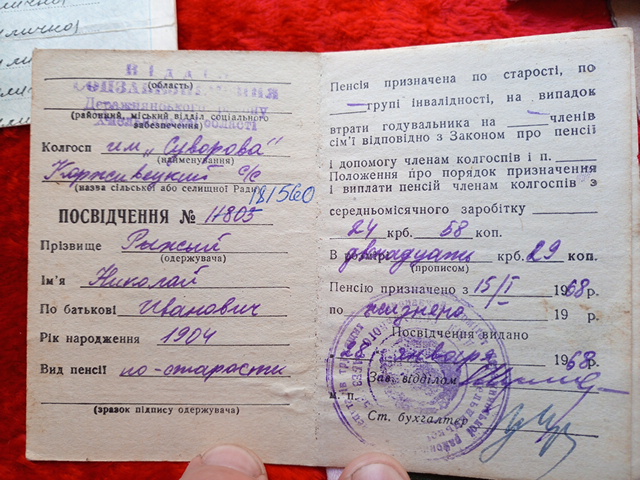 ВІДДІЛ
СОЦЗАБЕЗПЕЧЕННЯ
(область)
Деражнянського району
(районний, міський відділ соціального
забезпечення)
Хмельницької області
Колгосп им. „Суворова"
(найменування)
Корживецкий с/с
(назва сільської або селищної Ради)
18/560
ПОСВІДЧЕННЯ № 11805
Прізвище Рыжый
(одержувача)
Ім'я Николай
По батькові Иванович
Рік народження 1904
Вид пенсії по-старости
(зразок підпису одержувача)
Пенсія призначена по старості, по
групі інвалідності, на випадок
втрати годувальника на членів
сім'ї відповідно з Законом про пенсії
і допомогу членам колгоспів і п.
Положення про порядок призначення
і виплати пенсій членам колгоспів з
середньомісячного заробітку
24 крб. 58 коп.
В розмірі двенадцать крб. 29 коп.
(прописом)
Пенсію призначено з 15/I 1968 р.
по пожизнено 19 р.
Посвідчення видано
января 1968 р.
Зав. відділом
м. п.
Ст. бухгалтер